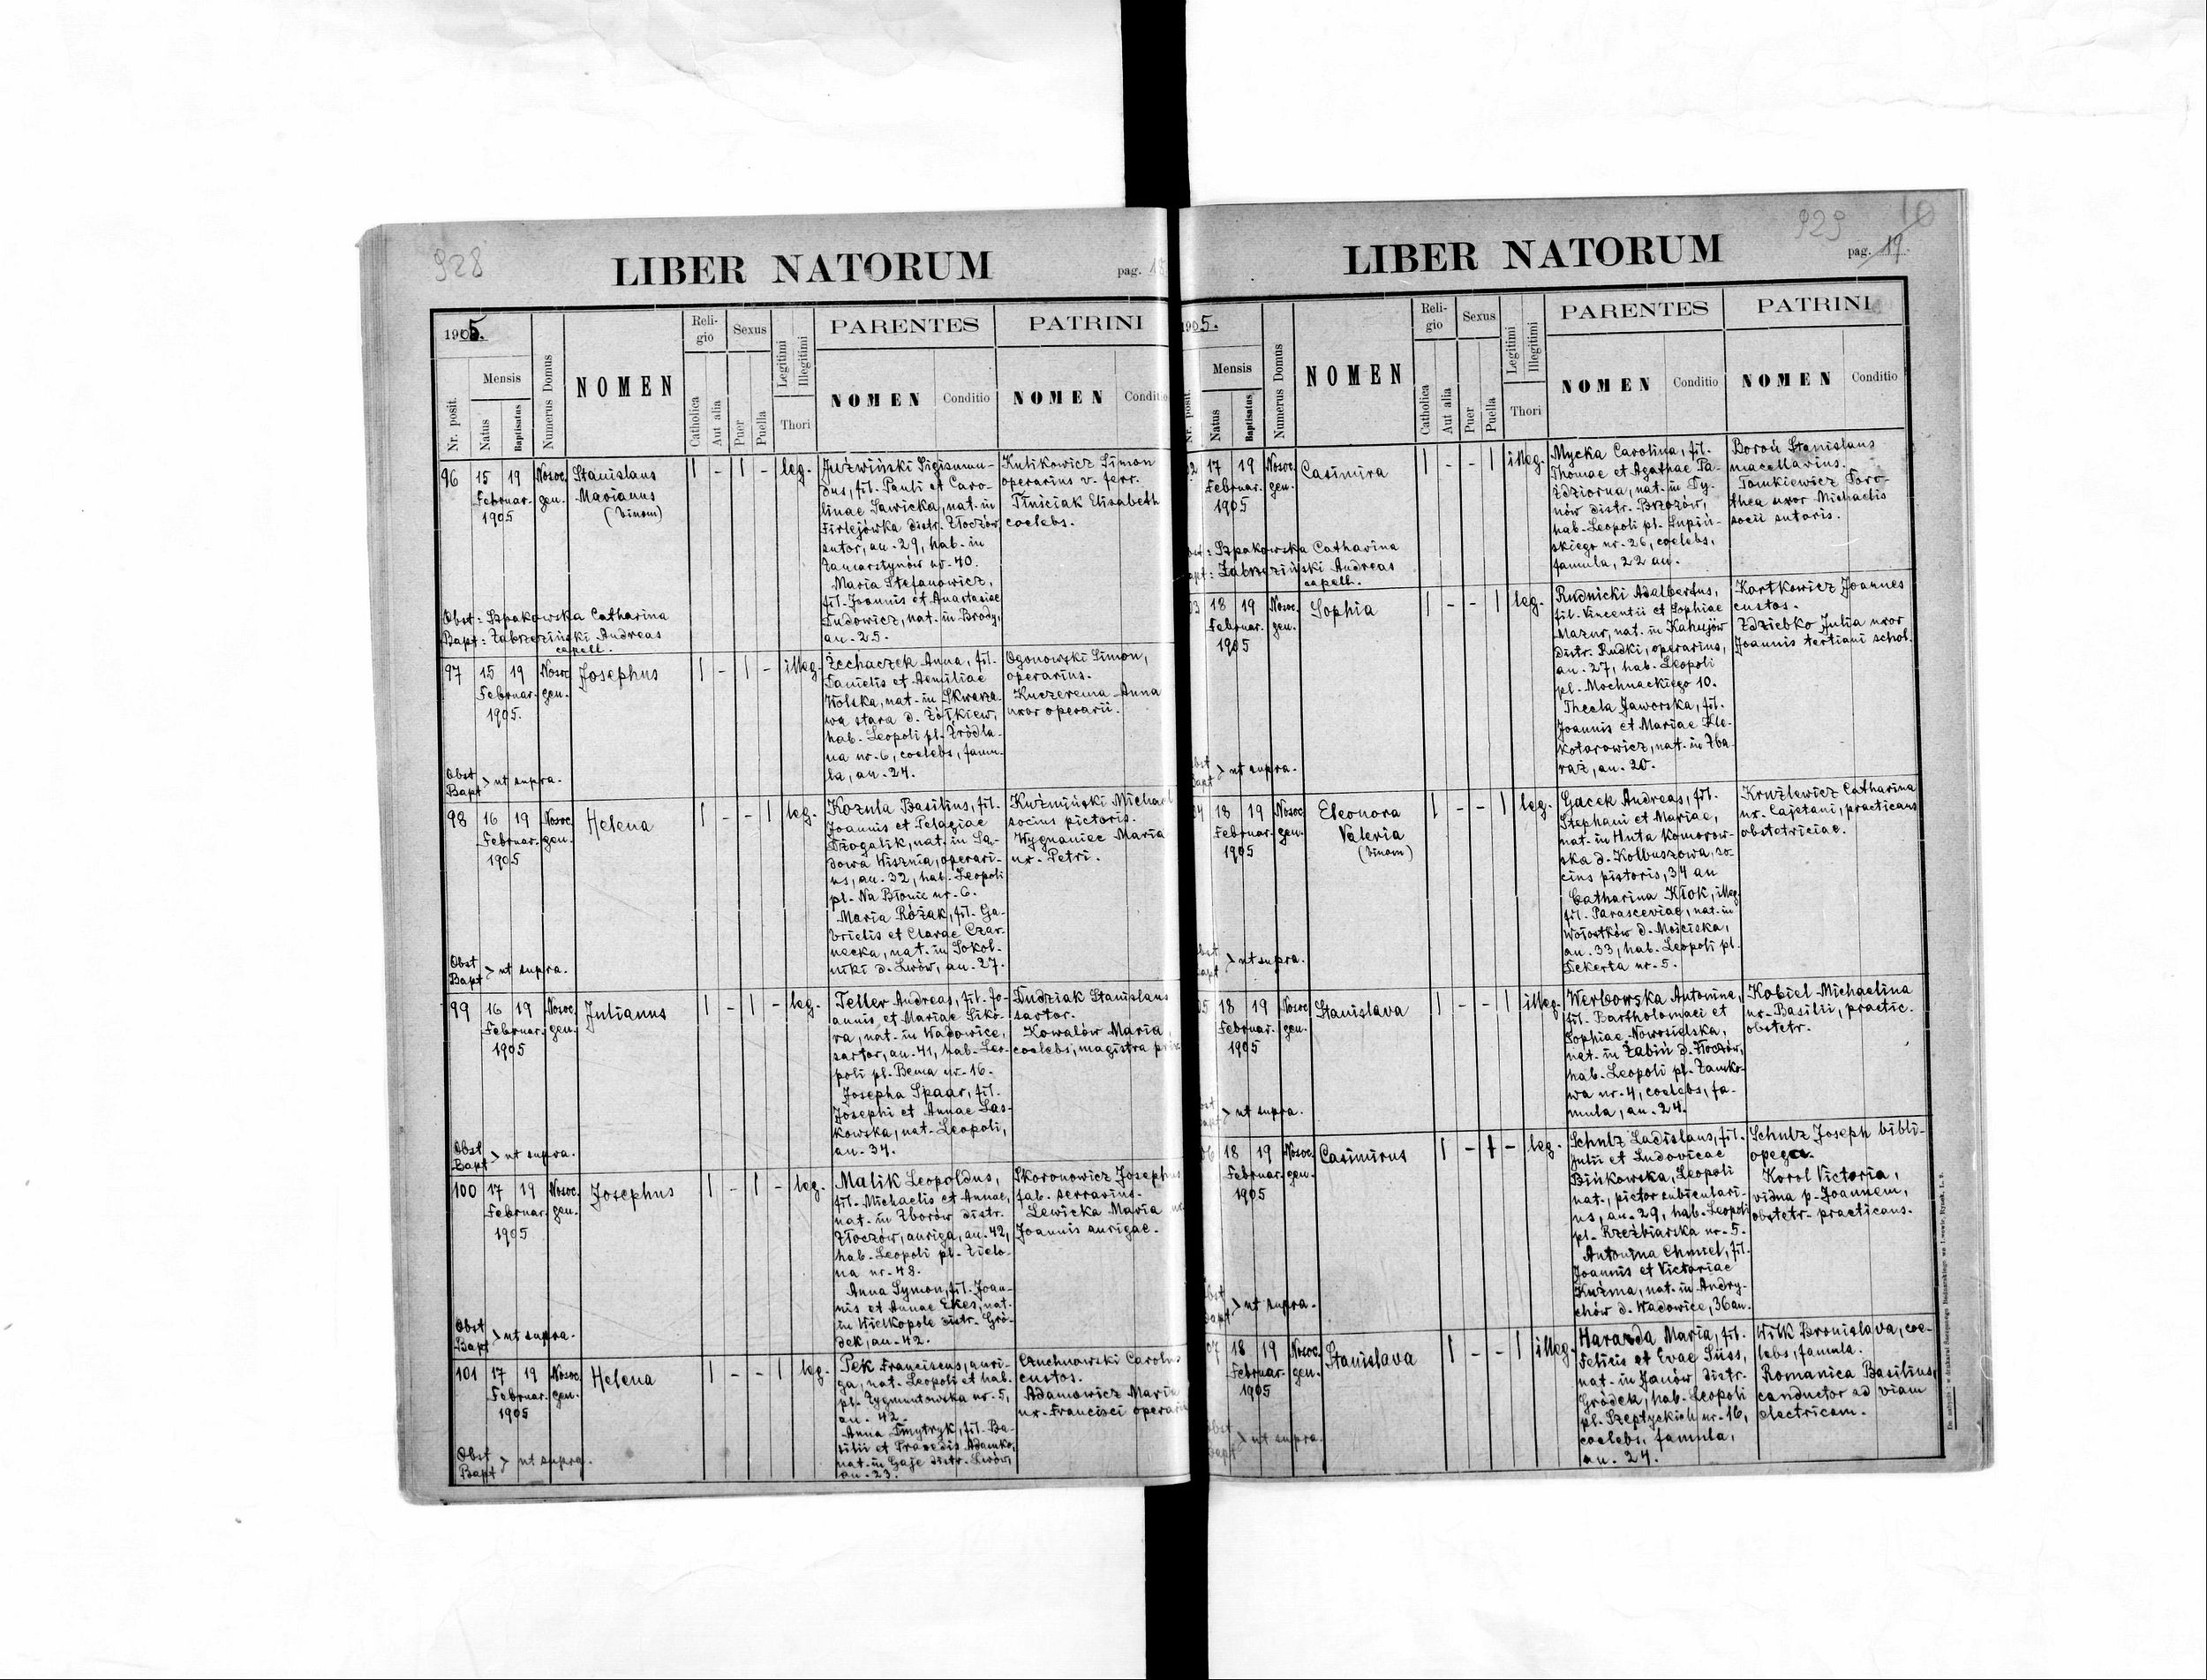 928
LIBER NATORUM
pag. 18
1905.
Nr. posit.
Mensis
Natus
Baptisatus
Numerus Domus
NOMEN
Reli-
gio
Catholica
Aut alia
Sexus
Puer
Puella
Legitimi
Illegitimi
Thori
PARENTES
NOMEN
Conditio
PATRINI
NOMEN
Conditio
96
15
19
Februar.
1905
Nosoc.
gen.
Stanislaus
Marianus
(binom)
1
-
1
-
leg.
Juźwiński Sigismun-
dus, fil. Pauli et Caro-
linae Sawicka, nat. in
Firlejówka distr. Złoczów
sutor, an. 29, hab. in
Zamarstynów nr. 40.
Maria Stefanowicz,
fil. Joannis et Anastasiae
Dudowicz, nat. in Brody,
an. 25.
Kulikowicz Simon
operarius v. ferr.
Tłuściak Elisabeth
coelebs.
Obst: Szpakowska Catharina
Bapt: Zabrzeziński Andreas
capell.
97
15
19
Februar.
1905.
Nosoc.
gen.
Josephus
1
-
1
-
illeg.
Żechaczek Anna, fil.
Danielis et Aemiliae
Wolska, nat. in Skwarza-
wa stara d. Żółkiew,
hab. Leopoli pl. Źródla-
na nr. 6, coelebs, famu-
la, an. 24.
Ogonowski Simon,
operarius.
Kuczerema Anna
uxor operarii.
Obst
Bapt > ut supra.
98
16
19
Februar.
1905
Nosoc.
gen.
Helena
1
-
-
1
leg.
Kozula Basilius, fil.
Joannis et Pelagiae
Dżogalik, nat. in Sa-
dowa Wisznia, operari-
us, an. 32, hab. Leopoli
pl. Na Błonie nr. 6.
Maria Różak, fil. Ga-
brielis et Clarae Czar-
necka, nat. in Sokol-
niki d. Lwów, an. 27.
Kuźmiński Michael
socius pictoris.
Wygnaniec Maria
ux. Petri.
Obst
Bapt > ut supra.
99
16
19
Februar.
1905
Nosoc.
gen.
Julianus
1
-
1
-
leg.
Teller Andreas, fil. Jo-
annis et Mariae Siko-
ra, nat. in Wadowice,
sartor, an. 41, hab. Leo-
poli pl. Bema nr. 16.
Josepha Spaar, fil.
Josephi et Annae Las-
kowska, nat. Leopoli,
an. 34.
Dudziak Stanislaus
sartor.
Kowalów Maria,
coelebs, magistra
Obst
Bapt > ut supra.
100
17
19
Februar.
1905
Nosoc.
gen.
Josephus
1
-
1
-
leg.
Malik Leopoldus,
fil. Michaelis et Annae,
nat. in Zborów distr.
Złoczów, auriga, an. 42,
hab. Leopoli pl. Zielo-
na nr. 48.
Anna Symon, fil. Joan-
nis et Annae Ekes, nat.
in Wielkopole distr. Gró-
dek, an. 42.
Skoronowicz Josephus
fab. ferrarius.
Lewicka Maria
Joannis aurigae.
Obst
Bapt > ut supra.
101
17
19
Februar.
1905
Nosoc.
gen.
Helena
1
-
-
1
leg.
Pek Franciscus, auri-
ga, nat. Leopoli et hab.
pl. Zygmuntowska nr. 5,
an. 42.
Anna Dmytryk, fil. Ba-
silii et Praxedis Adamko,
nat. in Gaje distr. Lwów,
an. 23.
Czuchnowski Carolus
custos.
Adamowicz Maria
ux. Francisci operarii
Obst
Bapt > ut supra.
929
10
LIBER NATORUM
pag. 19.
1905.
Nr. posit.
Mensis
Natus
Baptisatus
Numerus Domus
NOMEN
Reli-
gio
Catholica
Aut alia
Sexus
Puer
Puella
Legitimi
Illegitimi
Thori
PARENTES
NOMEN
Conditio
PATRINI
NOMEN
Conditio
2
17
19
Februar.
1905
Nosoc.
gen.
Casimira
1
-
-
1
illeg.
Mycka Carolina, fil.
Thomae et Agathae Pa-
ździorna, nat. in Dy-
nów distr. Brzozów,
hab. Leopoli pl. Supiń-
skiego nr. 26, coelebs,
famula, 22 an.
Boroń Stanislaus
macellarius.
Tomkiewicz Doro-
thea uxor Michaelis
socii sutoris.
Obst: Szpakowska Catharina
Bapt: Zabrzeziński Andreas
capell.
3
18
19
Februar.
1905
Nosoc.
gen.
Sophia
1
-
-
1
leg.
Rudnicki Adalbertus,
fil. Vincentii et Sophiae
Mazur, nat. in Kahujów
distr. Rudki, operarius,
an. 27, hab. Leopoli
pl. Mochnackiego 10.
Thecla Jaworska, fil.
Joannis et Mariae Kle-
kotarowicz, nat. in Zba-
raż, an. 20.
Kortkowicz Joannes
custos.
Zdziebko Julia uxor
Joannis tertiani schol.
Obst
Bapt > ut supra.
4
18
19
Februar.
1905
Nosoc.
gen.
Eleonora
Valeria
(binom)
1
-
-
1
leg.
Gacek Andreas, fil.
Stephani et Mariae,
nat. in Huta Komorow-
ska d. Kolbuszowa, so-
cius pistoris, 34 an
Catharina Kłok, illeg.
fil. Parasceviae, nat. in
Wojostków d. Mościska,
an. 33, hab. Leopoli pl.
Dekerta nr. 5.
Kruźlewicz Catharina
ux. Cajetani, practicans
obstetriciae.
Obst
Bapt > ut supra.
5
18
19
Februar.
1905
Nosoc.
gen.
Stanislava
1
-
-
1
illeg.
Werbowska Antonina,
fil. Bartholomaei et
Sophiae Nowosielska,
nat. in Żabin d. Złoczów,
hab. Leopoli pl. Zamko-
wa nr. 4, coelebs, fa-
mula, an. 24.
Kobiel Michaelina
ux. Basilii, practic.
obstetr.
Obst
Bapt > ut supra.
6
18
19
Februar.
1905
Nosoc.
gen.
Casimirus
1
-
1
-
leg.
Schulz Ladislaus, fil.
Julii et Ludovicae
Bińkowska, Leopoli
nat., pictor cubiculari-
us, an. 29, hab. Leopoli
pl. Rzeźbiarska nr. 5.
Antonina Chmiel, fil.
Joannis et Victoriae
Kuźma, nat. in Andry-
chów d. Wadowice, 36 an.
Schulz Joseph bibli-
opega.
Korol Victoria,
vidua p. Joannem,
obstetr. practicans.
Obst
Bapt > ut supra.
7
18
19
Februar.
1905
Nosoc.
gen.
Stanislava
1
-
-
1
illeg.
Harazda Maria, fil.
Felicis et Evae Süss,
nat. in Janów distr.
Gródek, hab. Leopoli
pl. Szeptyckich nr. 16,
coelebs, famula,
an. 24.
Wilk Bronislava, coe-
lebs, famula.
Romanica Basilius,
conductor ad viam
electricam.
Obst
Bapt > ut supra.